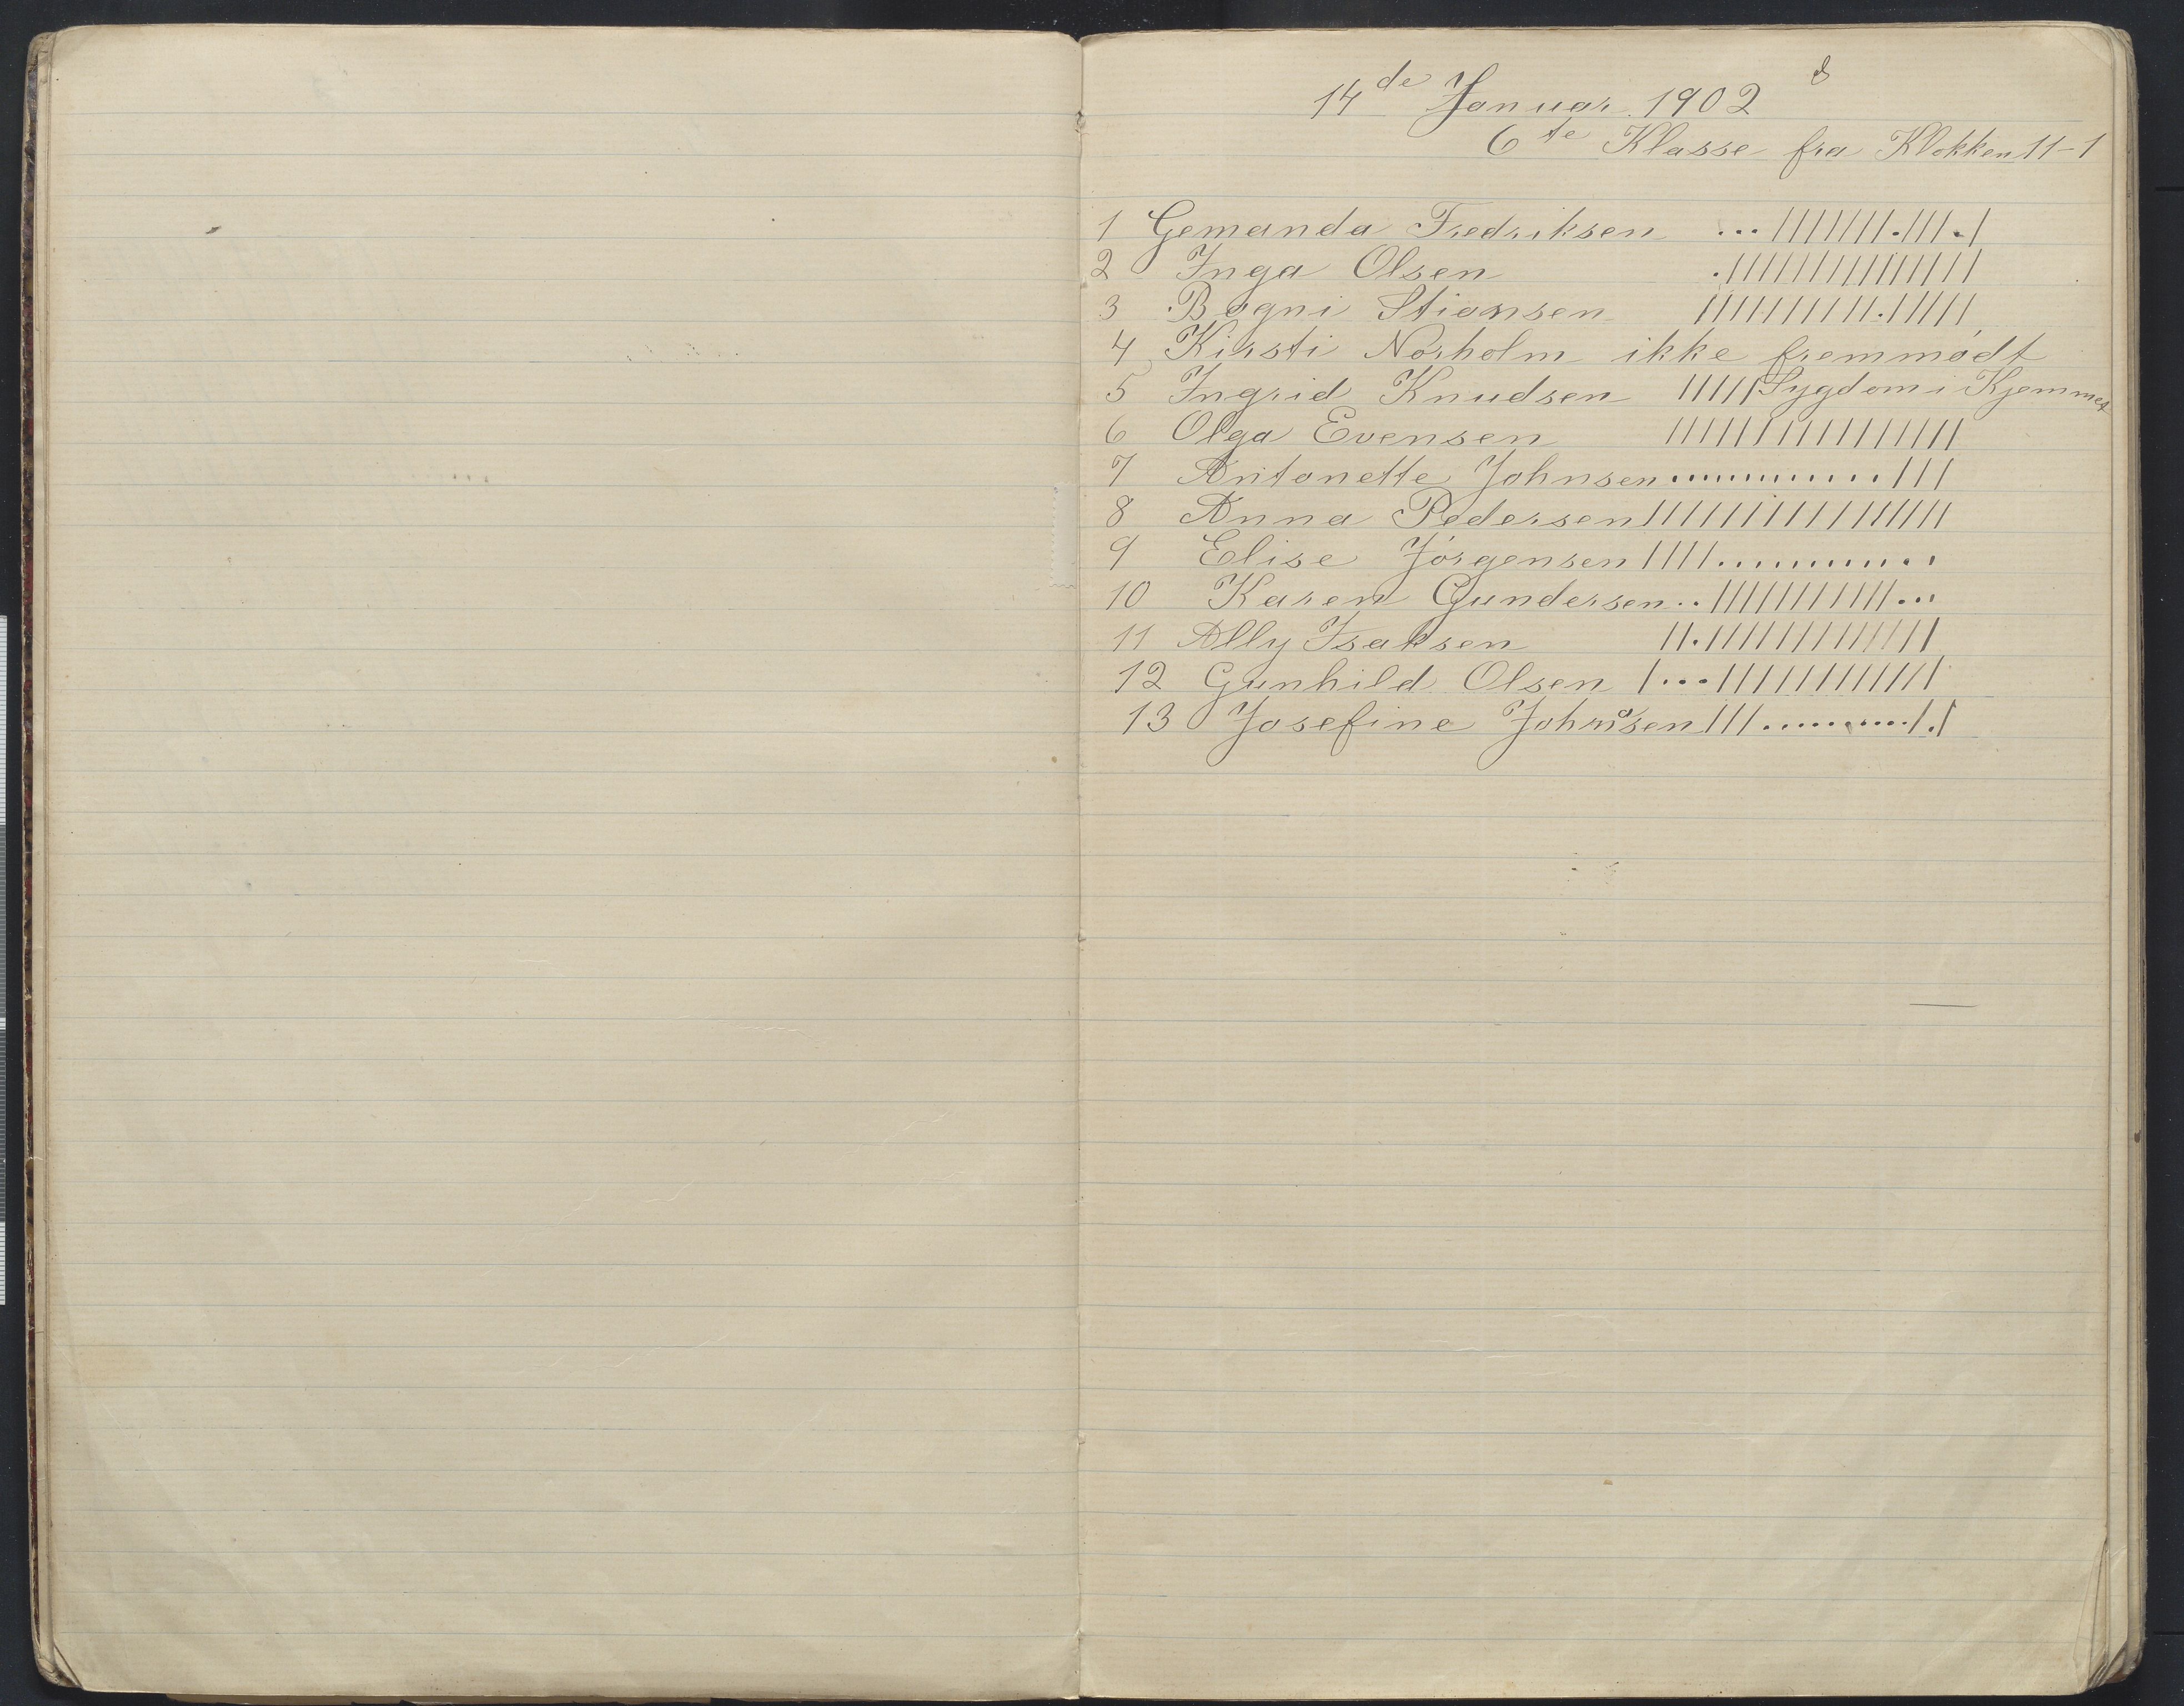 14de Januar. 1902
6te Klasse fra Klokken 11-1
1 Gemanda Fredriksen ...|||||||.|||.|
2 Inga Olsen .||||||||||||||
3 Bogni Stiansen ||||||||||.|||||
4 Kirsti Norholm ikke fremmødt
5 Ingrid Knudsen ||||| Sygdom i Hjemmet
6 Olga Evensen ||||||||||||||||
7 Antonette Johnsen .............|||
8 Anna Pedersen |||||||||||||||||
9 Elise Jørgensen ||||.............
10 Karen Gundersen ..|||||||||||...
11 Ally Isaksen ||.|||||||||||||
12 Gunhild Olsen |...||||||||||||
13 Josefine Johnsen |||...........|.|